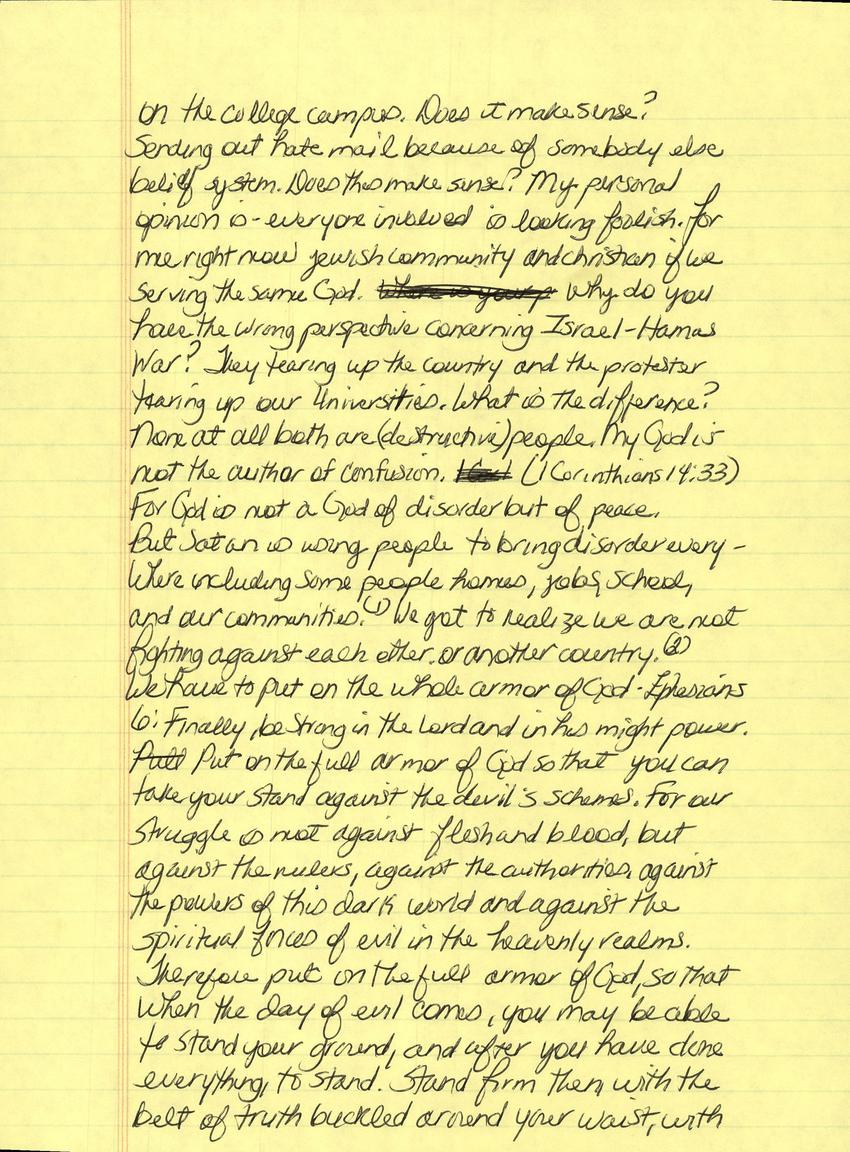 on the college campus. Does it make sense?
Sending out hate mail because of somebody else
belief system. Does this make sense? My personal
opinion is - everyone involved is looking foolish. For
me right now jewish community and christian if we
serving the same God. Why do you
have the wrong perspective concerning Israel-Hamas
War? They tearing up the country and the protester
tearing up our Universities. What is the difference?
None at all both are (destructive) people. My God is
not the author of confusion. (1 Corinthians 14:33)
For God is not a God of disorder but of peace.
But Satan is using people to bring disorder every-
where including some people homes, jobs, school,
and our communities. (1) We got to realize we are not
fighting against each other. or another country. (2)
We have to put on the whole armor of God - Ephesians
6: Finally, be strong in the Lord and in his might power.
Put on the full armor of God so that you can
take your stand against the devil's schemes. For our
struggle is not against flesh and blood, but
against the rulers, against the authorities, against
the powers of this dark world and against the
spiritual forces of evil in the heavenly realms.
Therefore put on the full armor of God, so that
when the day of evil comes, you may be able
to stand your ground, and after you have done
everything, to stand. Stand firm then, with the
belt of truth buckled around your waist, with